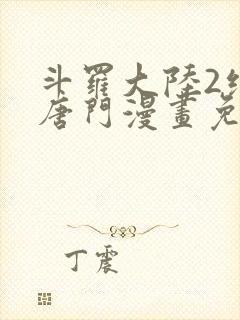 斗羅大陸2
唐門漫畫免
丁震